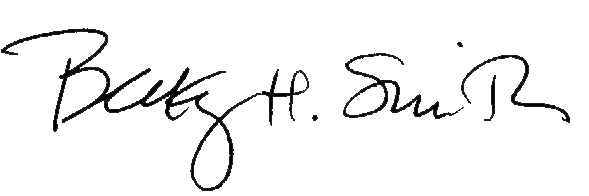 Betty H. Smith